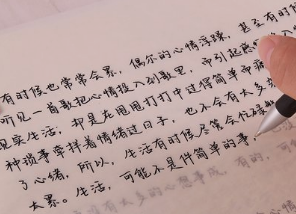 有时候也常常会累，偶尔的心情浮躁，甚至有时候
听见一首歌把心情投入到歌里，而引起
现实生活，却是在甩甩打打中过得简单而
种琐事牵拌着情绪过日子，也不会有太多
了心绪，所以，生活有时候尽管会忙碌
太累。生活，可能不是件简单的事，
有太多的心思事